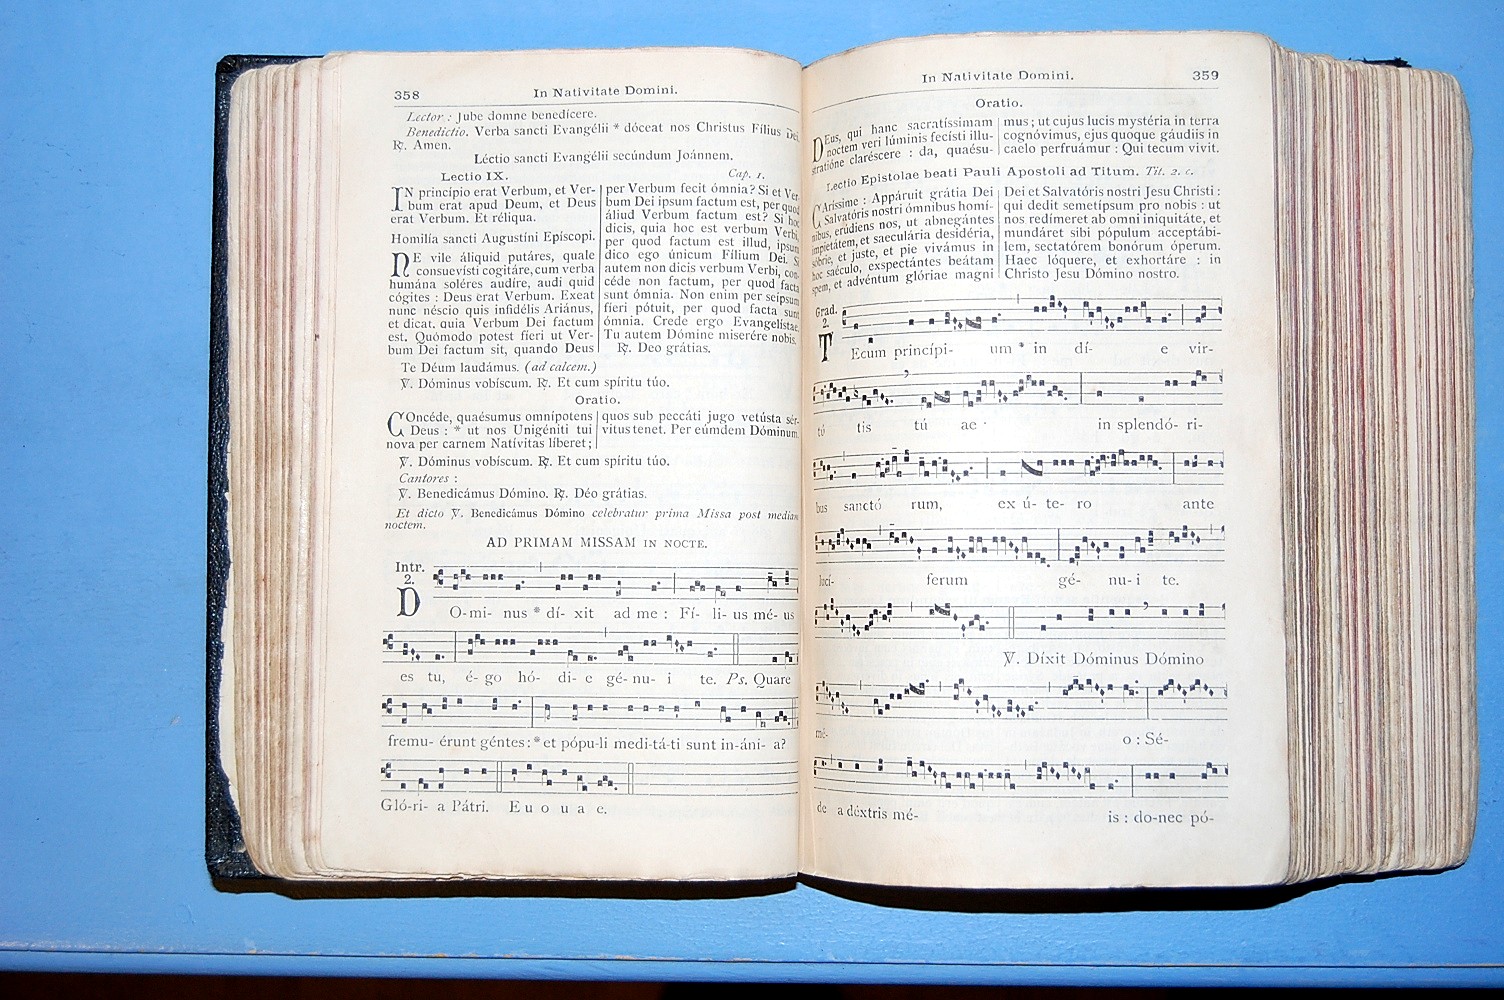 358
In Nativitate Domini.
Lector : Jube domne benedícere.
Benedictio. Verba sancti Evangélii * dóceat nos Christus Fílius Dei.
℟. Amen.
Léctio sancti Evangélii secúndum Joánnem.
Lectio IX.
Cap. 1.
IN princípio erat Verbum, et Ver-
bum erat apud Deum, et Deus
erat Verbum. Et réliqua.
Homilía sancti Augustíni Epíscopi.
NE vile áliquid putáres, quale
consuevísti cogitáre, cum verba
humána soléres audíre, audi quid
cógites : Deus erat Verbum. Exeat
nunc néscio quis infidélis Ariánus,
et dicat, quia Verbum Dei factum
est. Quómodo potest fíeri ut Ver-
bum Dei factum sit, quando Deus
per Verbum fecit ómnia? Si et Ver-
bum Dei ipsum factum est, per quod
áliud Verbum factum est? Si hoc
dicis, quia hoc est verbum Verbi,
per quod factum est illud, ipsum
dico ego únicum Fílium Dei. Si
autem non dicis verbum Verbi, con-
céde non factum, per quod facta
sunt ómnia. Non enim per seípsum
fíeri pótuit, per quod facta sunt
ómnia. Crede ergo Evangelístae.
Tu autem Dómine miserére nobis.
℟. Deo grátias.
Te Déum laudámus. (ad calcem.)
℣. Dóminus vobíscum. ℟. Et cum spíritu túo.
Oratio.
COncéde, quaésumus omnípotens
Deus : * ut nos Unigéniti tui
nova per carnem Natívitas líberet ;
quos sub peccáti jugo vetústa sér-
vitus tenet. Per eúmdem Dóminum.
℣. Dóminus vobíscum. ℟. Et cum spíritu túo.
Cantores :
℣. Benedicámus Dómino. ℟. Déo grátias.
Et dicto ℣. Benedicámus Dómino celebratur prima Missa post mediam
noctem.
AD PRIMAM MISSAM IN NOCTE.
Intr.
2.
DO-mi- nus * dí- xit ad me : Fí- li- us mé- us
es tu, é- go hó- di- e gé- nu- i te. Ps. Quare
fremu- érunt géntes : * et pópu-li medi-tá-ti sunt in-áni- a?
Gló-ri- a Pátri. E u o u a e.
In Nativitate Domini.
359
Oratio.
DEus, qui hanc sacratíssimam
noctem veri lúminis fecísti illu-
stratióne claréscere : da, quaésu-
mus ; ut cujus lucis mystéria in terra
cognóvimus, ejus quoque gáudiis in
caelo perfruámur : Qui tecum vivit.
Lectio Epistolae beati Pauli Apostoli ad Titum. Tit. 2. c.
CAríssime : Appáruit grátia Dei
Salvatóris nostri ómnibus homí-
nibus, erúdiens nos, ut abnegántes
impietátem, et saeculária desidéria,
sóbrie, et juste, et pie vivámus in
hoc saéculo, exspectántes beátam
spem, et advéntum glóriae magni
Dei et Salvatóris nostri Jesu Christi :
qui dedit semetípsum pro nobis : ut
nos redímeret ab omni iniquitáte, et
mundáret sibi pópulum acceptábi-
lem, sectatórem bonórum óperum.
Haec lóquere, et exhortáre : in
Christo Jesu Dómino nostro.
Grad.
2.
TEcum princípi- um * in dí- e vir-
tú- tis tú ae : in splendó- ri-
bus sanctó rum, ex ú- te- ro ante
lucí- ferum gé- nu- i te.
℣. Díxit Dóminus Dómino
mé- o : Sé-
de a déxtris mé- is : do-nec pó-